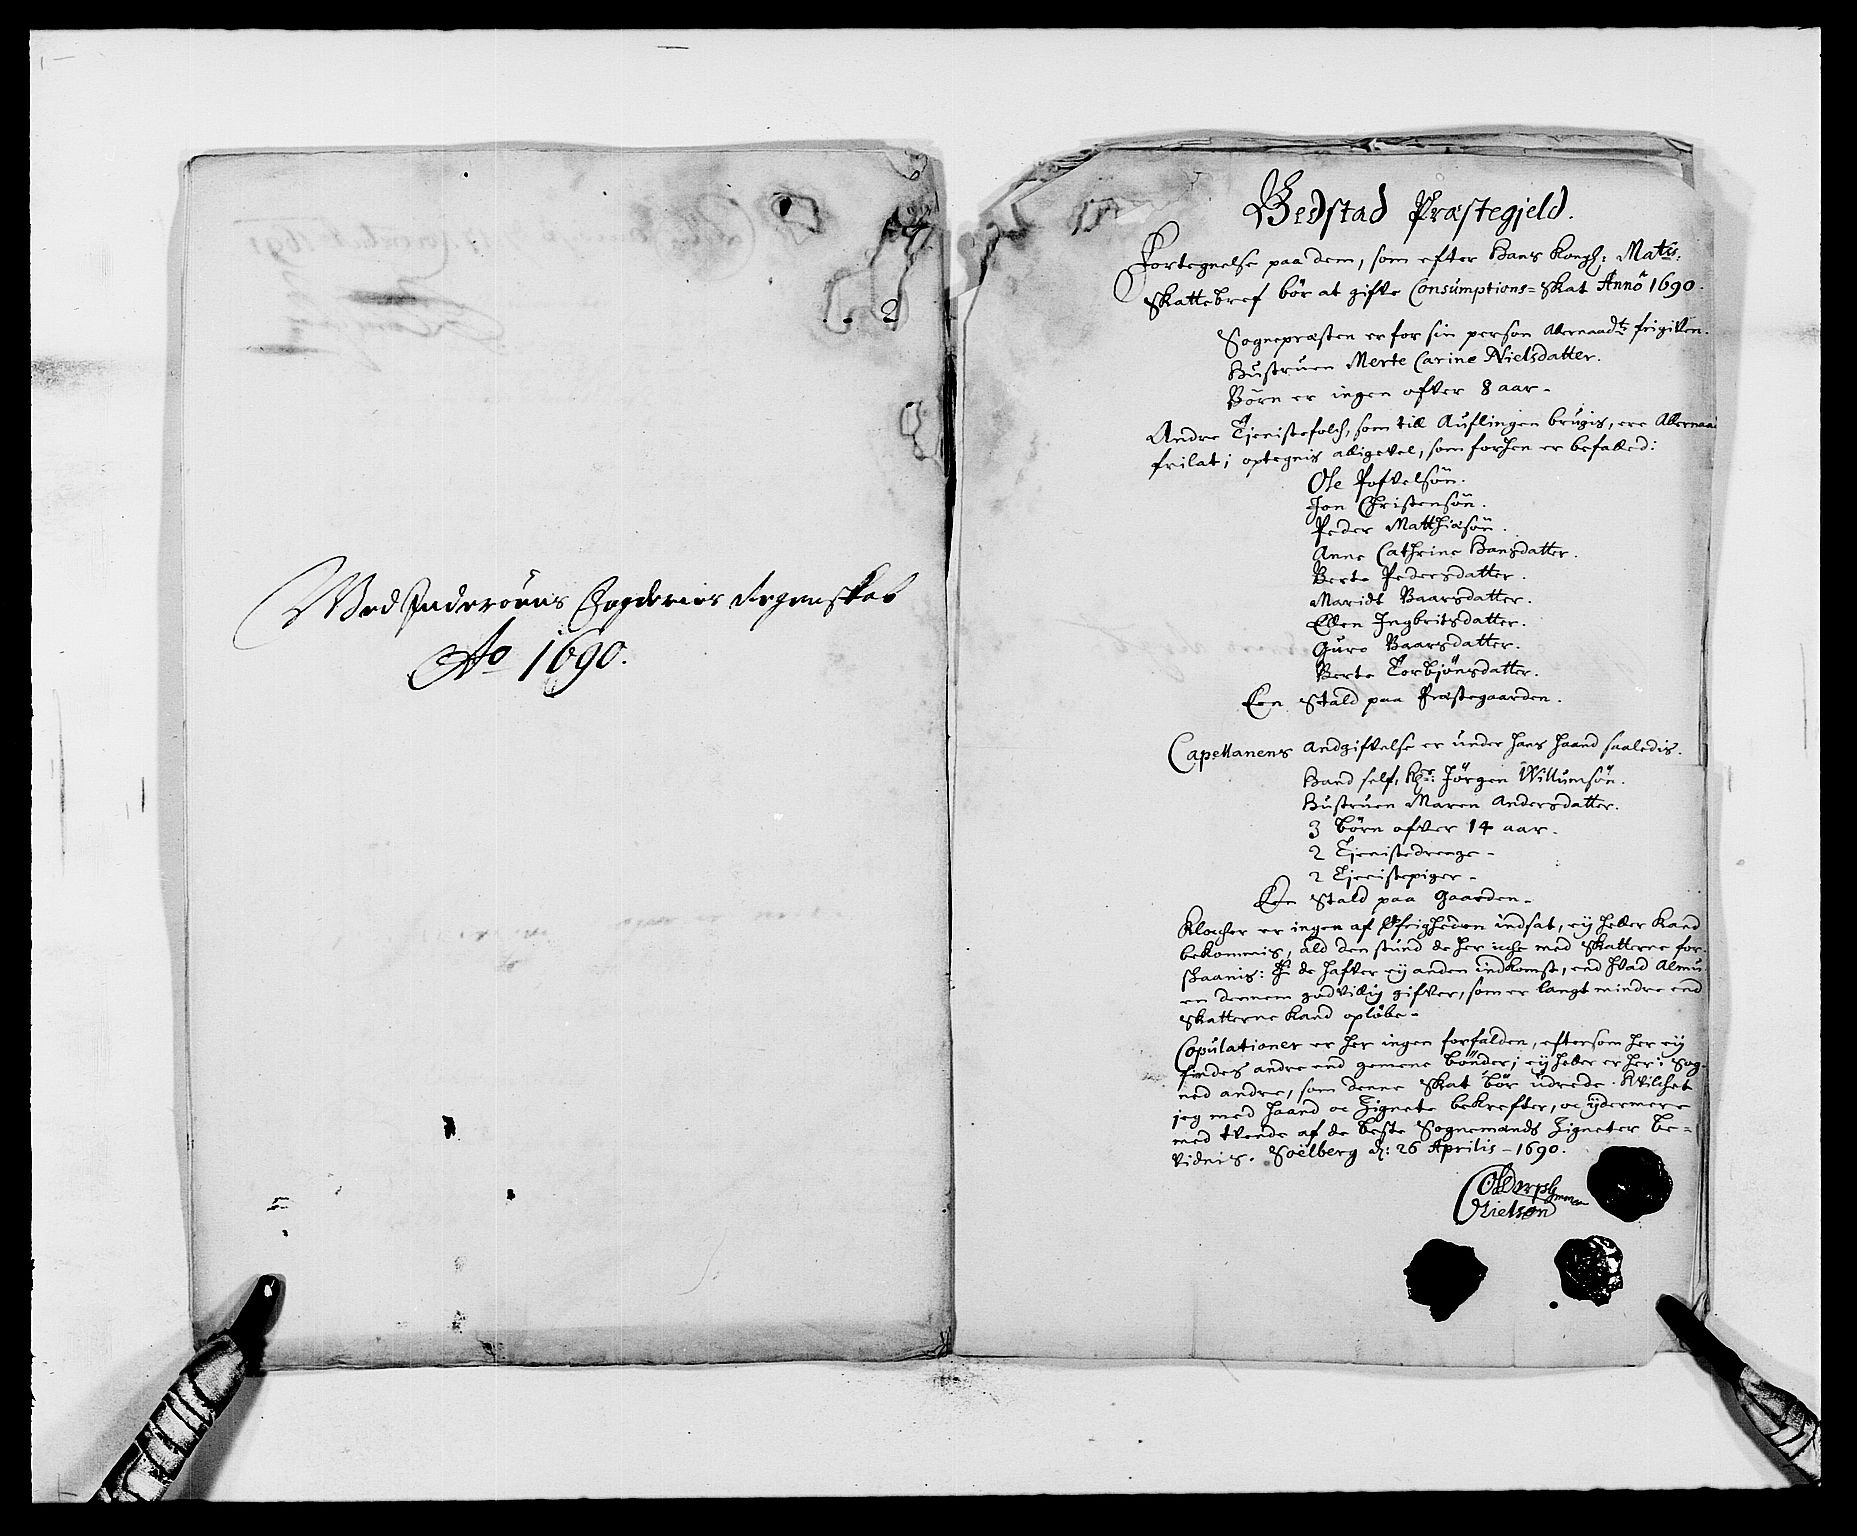 Wed Inderöens Fogderies Regenskab
Ao 1690.
Bedstad Præstegjeld.
Fortegnelse paa dem, som efter Hans Kongl: Mats:
Skattebref bör at gifve Consumptions=Skat Anno 1690.
Sognepræsten er for sin person allernaadst frigiven.
Hustruen Merte Carine Nielsdatter.
Börn er ingen ofver 8 aar.
Andre Tjenistefolch, som till Auflingen brugis, ere Allernaa
frilat; optegnis alligevel, som forhen er befalled:
Ole Pofvelsön.
Jon Christensön.
Peder Matthiasön.
Anne Cathrine Hansdatter.
Berte Pedersdatter.
Maridt Baarsdatter.
Ellen Ingbritsdatter.
Guro Baarsdatter.
Berte Torbjönsdatter.
Een Stald paa Præstegaarden.
Capellanens Andgifvelse er under hans haand saaledis.
Hand self, Hr: Jörgen Willumsön.
Hustruen Maren Andersdatter.
3 börn ofver 14 aar.
2 Tjenistedrenge -
2 Tjenistepiger -
Een Stald paa Gaarden -
Klocher er ingen af Öfrigheden indsat, eij heller kand
bekommis, ald den stund de her iche med Skatterne for-
skaanis: Thi de hafver eij anden indkomst, end hvad Almu
en dennem godvillig gifver, som er langt mindre end
Skatterne kand oplöbe -
Copulationer er her ingen forfalden, eftersom her eij
findes andre end gemene bönder; eij heller er her i Sog-
ned andre, som denne Skat bör udrede. Hvilchet
jeg med haand oc Zignete bekrefter, oc ÿdermere
med tvende af de beste Sognemænds Zigneter be-
vidnis. Soelberg d: 26 Aprilis - 1690.
Nielsøn